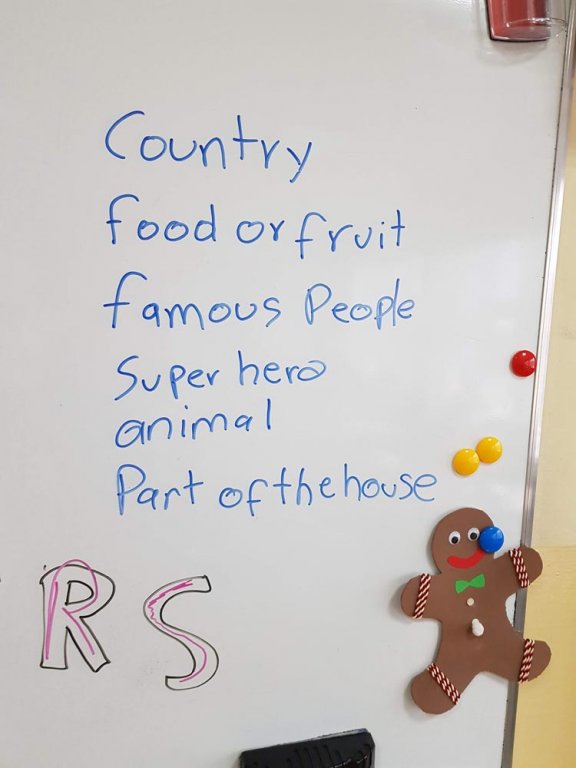 Country
food or fruit
famous People
Super hero
animal
Part of the house
R S